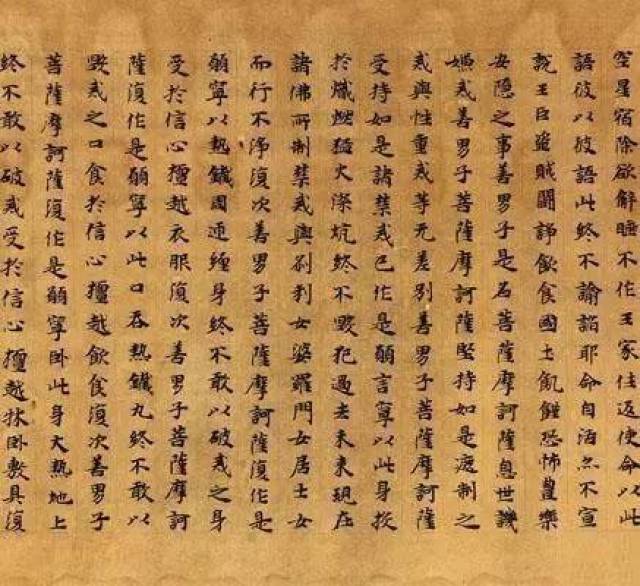 空星宿除欲解睡不作王家往返使命以此
語彼以彼語此終不諭諂耶命自活亦不宣
説王臣盜賊鬪諍飲食國土飢饉恐怖豊樂
安隱之事善男子是名菩薩摩訶薩息世譏
嫌戒善男子菩薩摩訶薩堅持如是遮制之
戒與性重戒等无差別善男子菩薩摩訶薩
受持如是諸禁戒已作是願言寧以此身投
於熾燃猛火深坑終不毀犯過去未來現在
諸佛所制禁戒與刹利女婆羅門女居士女
而行不淨復次善男子菩薩摩訶薩復作是
願寧以熱鐵周迊纏身終不敢以破戒之身
受於信心檀越衣服復次善男子菩薩摩訶
薩復作是願寧以此口吞熱鐵丸終不敢以
毀戒之口食於信心檀越飲食復次善男子
菩薩摩訶薩復作是願寧臥此身大熱地上
終不敢以破戒受於信心檀越床臥敷具復